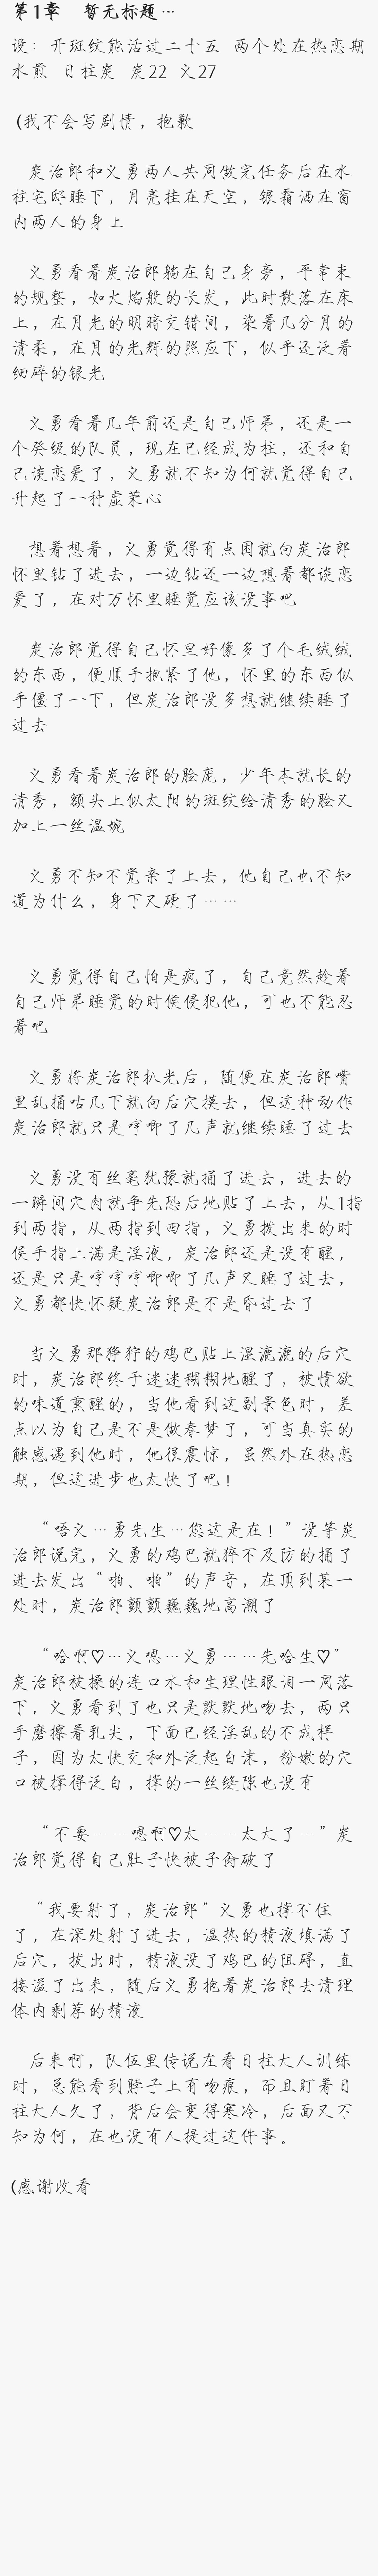 第1章 暂无标题…
设：开斑纹能活过二十五 两个处在热恋期
水煎 日柱炭 炭22 义27
(我不会写剧情，抱歉
炭治郎和义勇两人共同做完任务后在水
柱宅邸睡下，月亮挂在天空，银霜洒在窗
内两人的身上
义勇看着炭治郎躺在自己身旁，平常束
的规整，如火焰般的长发，此时散落在床
上，在月光的明暗交错间，染着几分月的
清柔，在月的光辉的照应下，似乎还泛着
细碎的银光
义勇看着几年前还是自己师弟，还是一
个癸级的队员，现在已经成为柱，还和自
己谈恋爱了，义勇就不知为何就觉得自己
升起了一种虚荣心
想着想着，义勇觉得有点困就向炭治郎
怀里钻了进去，一边钻还一边想着都谈恋
爱了，在对方怀里睡觉应该没事吧
炭治郎觉得自己怀里好像多了个毛绒绒
的东西，便顺手抱紧了他，怀里的东西似
乎僵了一下，但炭治郎没多想就继续睡了
过去
义勇看着炭治郎的脸庞，少年本就长的
清秀，额头上似太阳的斑纹给清秀的脸又
加上一丝温婉
义勇不知不觉亲了上去，他自己也不知
道为什么，身下又硬了……
义勇觉得自己怕是疯了，自己竟然趁着
自己师弟睡觉的时候侵犯他，可也不能忍
着吧
义勇将炭治郎扒光后，随便在炭治郎嘴
里乱捅咕几下就向后穴摸去，但这种动作
炭治郎就只是哼唧了几声就继续睡了过去
义勇没有丝毫犹豫就捅了进去，进去的
一瞬间穴肉就争先恐后地贴了上去，从1指
到两指，从两指到四指，义勇拨出来的时
候手指上满是淫液，炭治郎还是没有醒，
还是只是哼哼哼唧唧了几声又睡了过去，
义勇都快怀疑炭治郎是不是昏过去了
当义勇那狰狞的鸡巴贴上湿漉漉的后穴
时，炭治郎终于迷迷糊糊地醒了，被情欲
的味道熏醒的，当他看到这副景色时，差
点以为自己是不是做春梦了，可当真实的
触感遇到他时，他很震惊，虽然处在热恋
期，但这进步也太快了吧！
“唔义…勇先生…您这是在！”没等炭
治郎说完，义勇的鸡巴就猝不及防的捅了
进去发出“啪、啪”的声音，在顶到某一
处时，炭治郎颤颤巍巍地高潮了
“哈啊♡…义嗯…义勇……先哈生♡”
炭治郎被操的连口水和生理性眼泪一同落
下，义勇看到了也只是默默地吻去，两只
手磨擦着乳尖，下面已经淫乱的不成样
子，因为太快交和处泛起白沫，粉嫩的穴
口被撑得泛白，撑的一丝缝隙也没有
“不要……嗯啊♡太……太大了…”炭
治郎觉得自己肚子快被子捅破了
“我要射了，炭治郎”义勇也撑不住
了，在深处射了进去，温热的精液填满了
后穴，拔出时，精液没了鸡巴的阻碍，直
接溢了出来，随后义勇抱着炭治郎去清理
体内剩荐的精液
后来啊，队伍里传说在看日柱大人训练
时，总能看到脖子上有吻痕，而且盯着日
柱大人久了，背后会变得寒冷，后面又不
知为何，在也没有人提过这件事。
(感谢收看